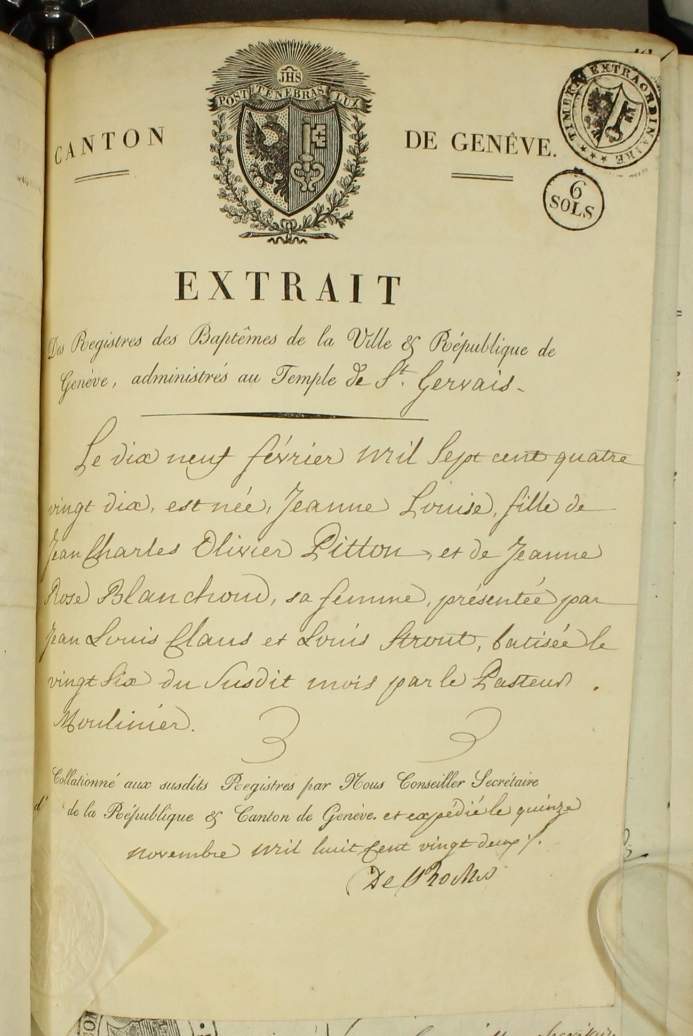 JHS
POST TENEBRAS LUX
CANTON DE GENÊVE.
TIMBRE EXTRAORDINAIRE
6
SOLS
EXTRAIT
Des Registres des Baptêmes de la Ville & République de
Genêve, administrés au Temple de St. Gervais.
Le dix neuf février mil Sept cent quatre
vingt dix, est née, Jeanne Louise, fille de
Jean Charles Olivier Pitton, et de Jeanne
Rose Blanchoud, sa femme, présentée par
Jean Louis Claus et Louis Strout, batisée le
vingt Six du Susdit mois par le Pasteur
Moulinier.
Collationné aux susdits Registres par Nous Conseiller Secrétaire
d' de la République & Canton de Genêve. et expédié le quinze
novembre mil huit Cent vingt deux.
De Roches